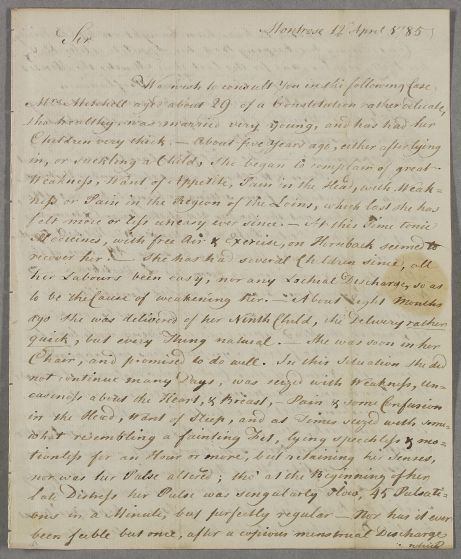 Montrose 12 April 1785
Sir
We wish to consult You in the following Case.
Mrs Mitchell aged about 29 of a Constitution rather delicate,
tho healthy, was married very Young, and has had her
Children very thick. — About five Years ago, either after lying
in, or suckling a Child, She began to complain of great
Weakness, Want of Appetite, Pain in the Head, with Weak-
ness or Pain in the Region of the Loins, which last she has
felt more or less uneasy ever since. — At this Time tonic
Medicines, with free Air & Exercise, on Horseback seemed to
recover her. — She has had several Children since, all
her Labours been easy, nor any Lochial Discharge, so as
to be the Cause of weakening Her. — About eight Months
ago She was delivered of her Ninth Child, the Delivery rather
quick, but every Thing natural. — She was soon in her
Chair, and promised to do well. In this Situation she did
not continue many Days, was seized with Weakness, Un-
easiness about the Heart, & Breast, Pain & some Confusion
in the Head, Want of Sleep, and at Times seized with some-
what resembling a fainting Fit, lying speechless & mo-
tionless for an Hour or more, but retaining her Senses,
nor was her Pulse altered; tho' at the Beginning of her
late Distress her Pulse was singularly slow, 45 Pulsati-
ons in a Minute, but perfectly regular — Nor has it ever
been feeble but once, after a copious menstrual Discharge
which